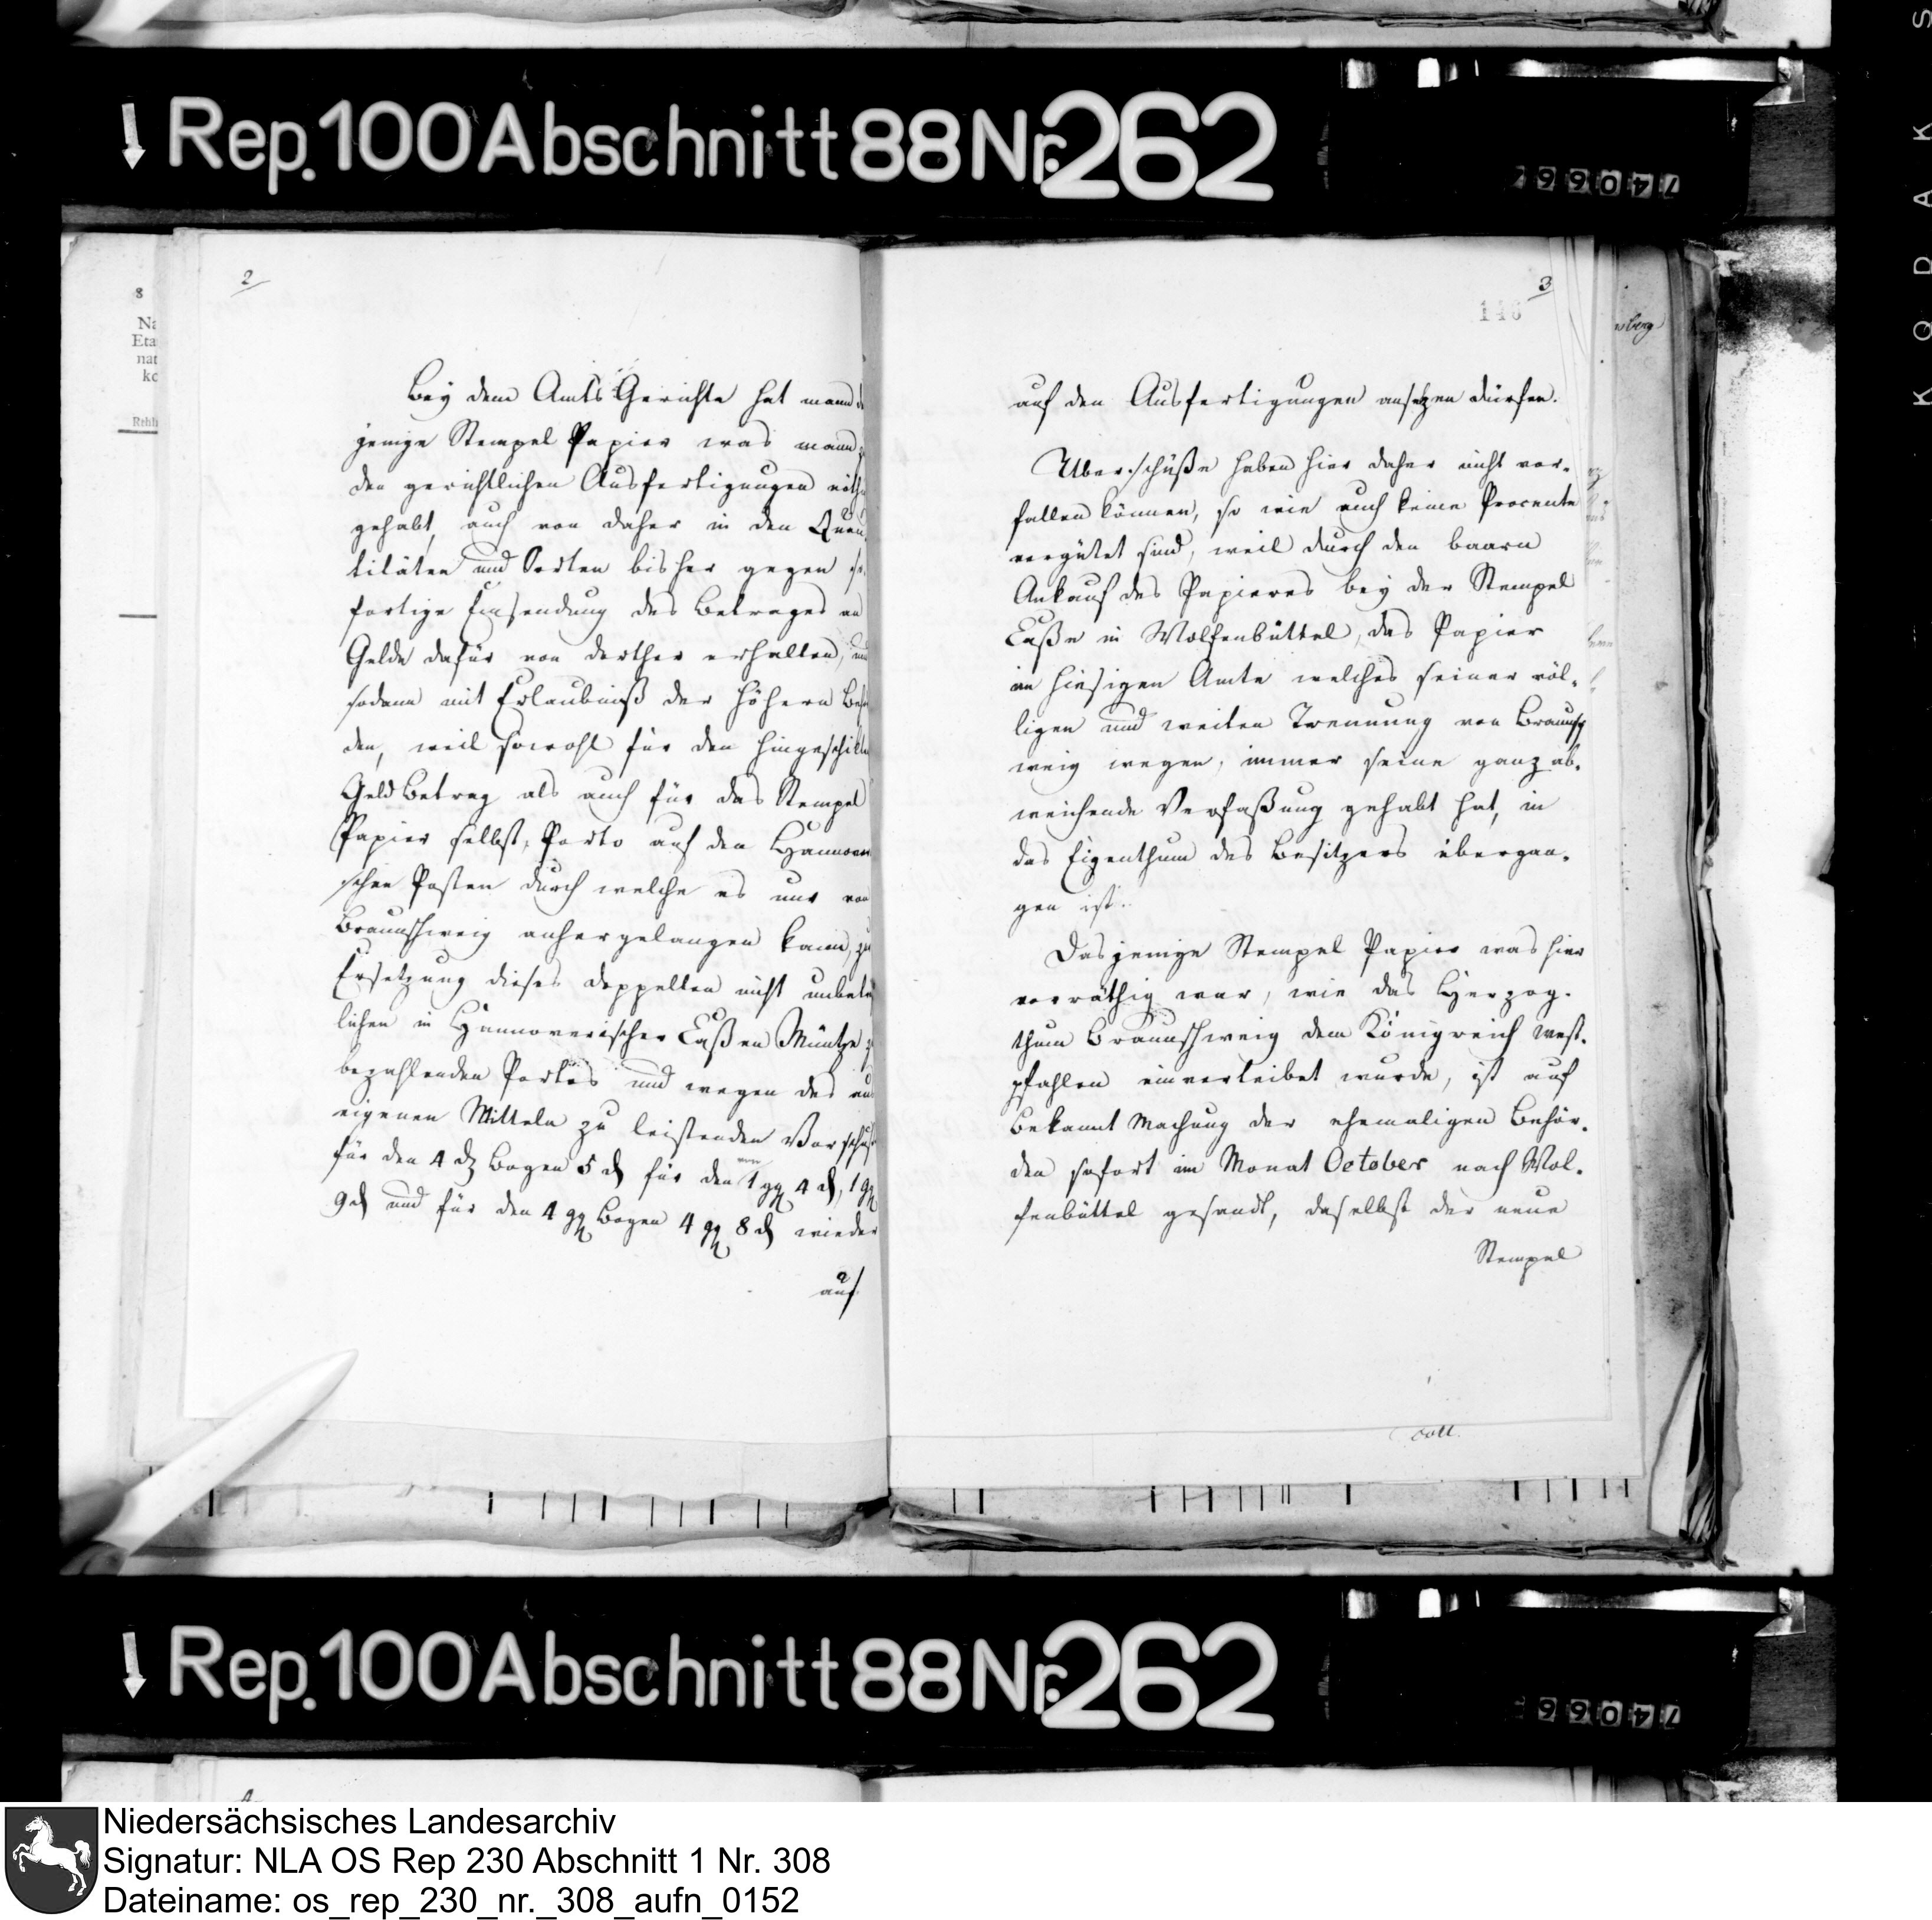 Rep. 100 Abschnitt 88 Nr. 262
2
Bey dem Amts Gerichte hat mann
jenige Stempel Papier was mann
den gerichtlichen Ausfertigungen
gehabt, auch von daher in den Quan
titäten und Sorten bisher gegen so
fortige Einsendung des Betrages an
Gelde dafür von dorther erhalten, und
sodann mit Erlaubniß der höhern
den, weil sowohl für den hingeschickten
Geld Betrag als auch für das Stempel
Papier selbst, Porto auf den Hannove
schen Posten durch welche es nur von
Braunschweig anhergelangen kann, zu
Ersetzung dieses doppelten nicht
lichen in Hannoverischer Caßen Müntze
bezahlenden Porto's und wegen des
eigenen Mitteln zu leistenden Vorschuß
für den 4 Bogen 5 ₰ für den 1 ggl 4 ₰, 1 ggl
9 ₰ und für den 4 ggl Bogen 4 ggl 8 ₰ wieder
auf
3
146
auf den Ausfertigungen ansetzen dürfen.
Uberschüße haben hier daher nicht vor-
fallen können, so wie auch keine Procente
vergütet sind, weil durch den baaren
Ankauf des Papieres bey der Stempel
Caße in Wolfenbüttel, das Papier
im hiesigen Amte welches seiner völ-
ligen und weiten Trennung von Braunsch
weig wegen, immer seine ganz ab-
weichende Verfaßung gehabt hat, in
das Eigenthum des Besitzers übergan-
gen ist.
Dasjenige Stempel Papier was hier
vorräthig war, wie das Herzog-
thum Braunschweig dem Königreich West-
pfahlen einverleibet wurde, ist auf
Bekannt Machung der ehemaligen Behör-
den sofort im Monat October nach Wol-
fenbüttel gesandt, daselbst der neue
Stempel
Rep. 100 Abschnitt 88 Nr. 262
Niedersächsisches Landesarchiv
Signatur: NLA OS Rep 230 Abschnitt 1 Nr. 308
Dateiname: os_rep_230_nr._308_aufn_0152